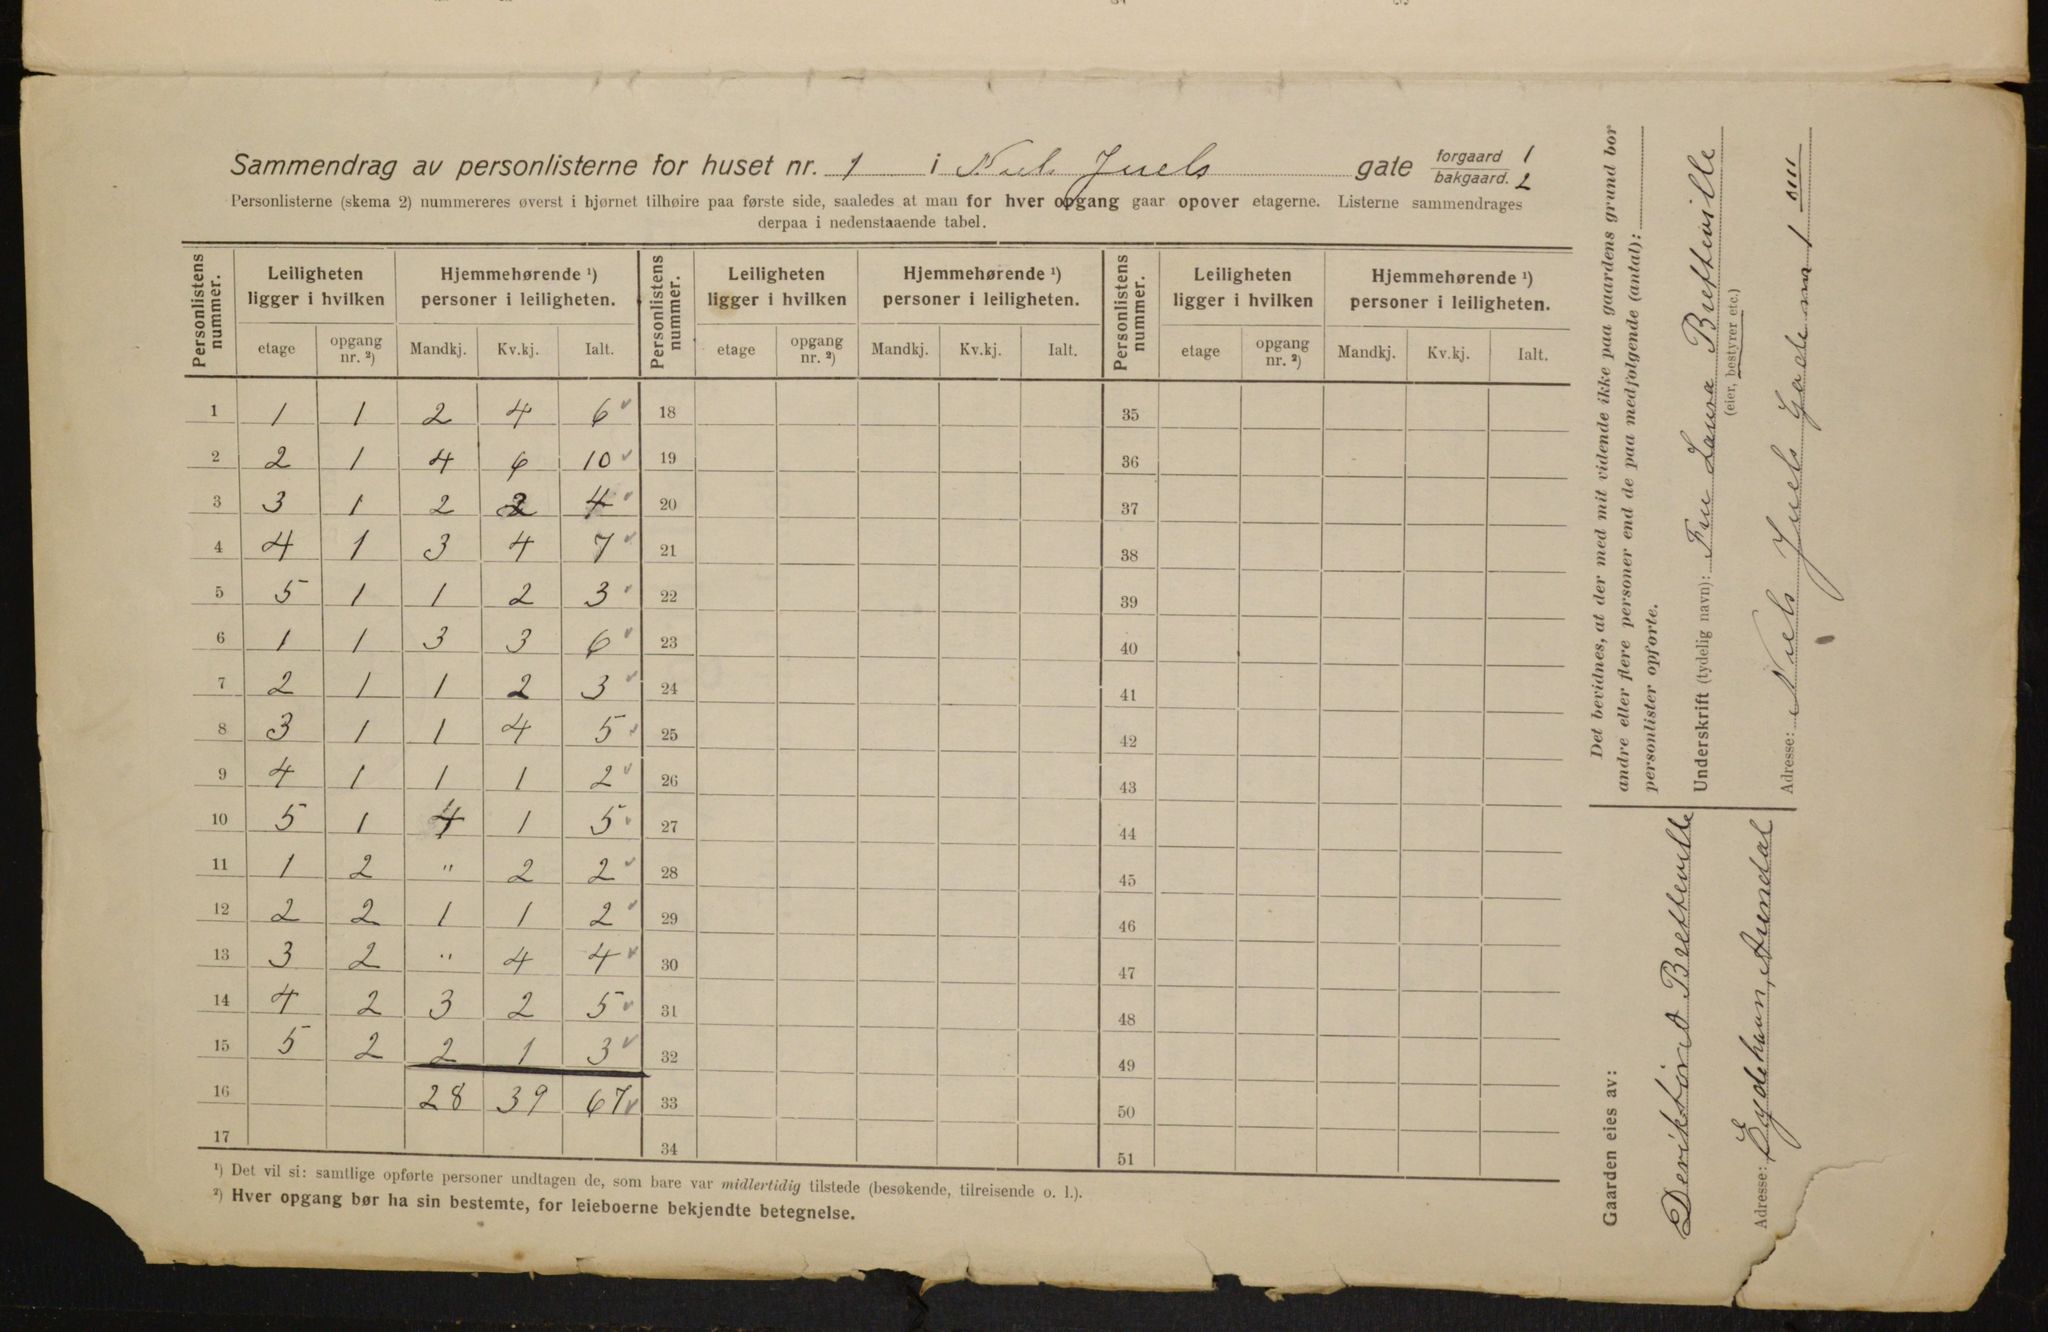 Sammendrag av personlisterne for huset nr. 1 i Niels Juels gate forgaard 1 bakgaard. 2
Personlisterne (skema 2) nummereres øverst i hjørnet tilhøire paa første side, saaledes at man for hver opgang gaar opover etagerne. Listerne sammendrages
derpaa i nedenstaaende tabel.
Personlistens nummer. Leiligheten ligger i hvilken Hjemmehørende ¹) personer i leiligheten. Personlistens nummer. Leiligheten ligger i hvilken Hjemmehørende ¹) personer i leiligheten. Personlistens nummer. Leiligheten ligger i hvilken Hjemmehørende ¹) personer i leiligheten.
etage opgang nr. ²) Mandkj. Kv.kj. Ialt. etage opgang nr. ²) Mandkj. Kv.kj. Ialt. etage opgang nr. ²) Mandkj. Kv.kj. Ialt.
1 1 1 2 4 6 18 35
2 2 1 4 6 10 19 36
3 3 1 2 2 4 20 37
4 4 1 3 4 7 21 38
5 5 1 1 2 3 22 39
6 1 1 3 3 6 23 40
7 2 1 1 2 3 24 41
8 3 1 1 4 5 25 42
9 4 1 1 1 2 26 43
10 5 1 4 1 5 27 44
11 1 2 " 2 2 28 45
12 2 2 1 1 2 29 46
13 3 2 " 4 4 30 47
14 4 2 3 2 5 31 48
15 5 2 2 1 3 32 49
16 28 39 67 33 50
17 34 51
¹) Det vil si: samtlige opførte personer undtagen de, som bare var midlertidig tilstede (besøkende, tilreisende o. l.).
²) Hver opgang bør ha sin bestemte, for leieboerne bekjendte betegnelse.
Det bevidnes, at der med mit vidende ikke paa gaardens grund bor
andre eller flere personer end de paa medfølgende (antal):
personlister opførte.
Underskrift (tydelig navn): Fru Laura Bretteville
(eier, bestyrer etc.)
Adresse: Niels Juels Gade no 1 IIII
Gaarden eies av:
Bretteville
Adresse: Eydehavn, Arendal